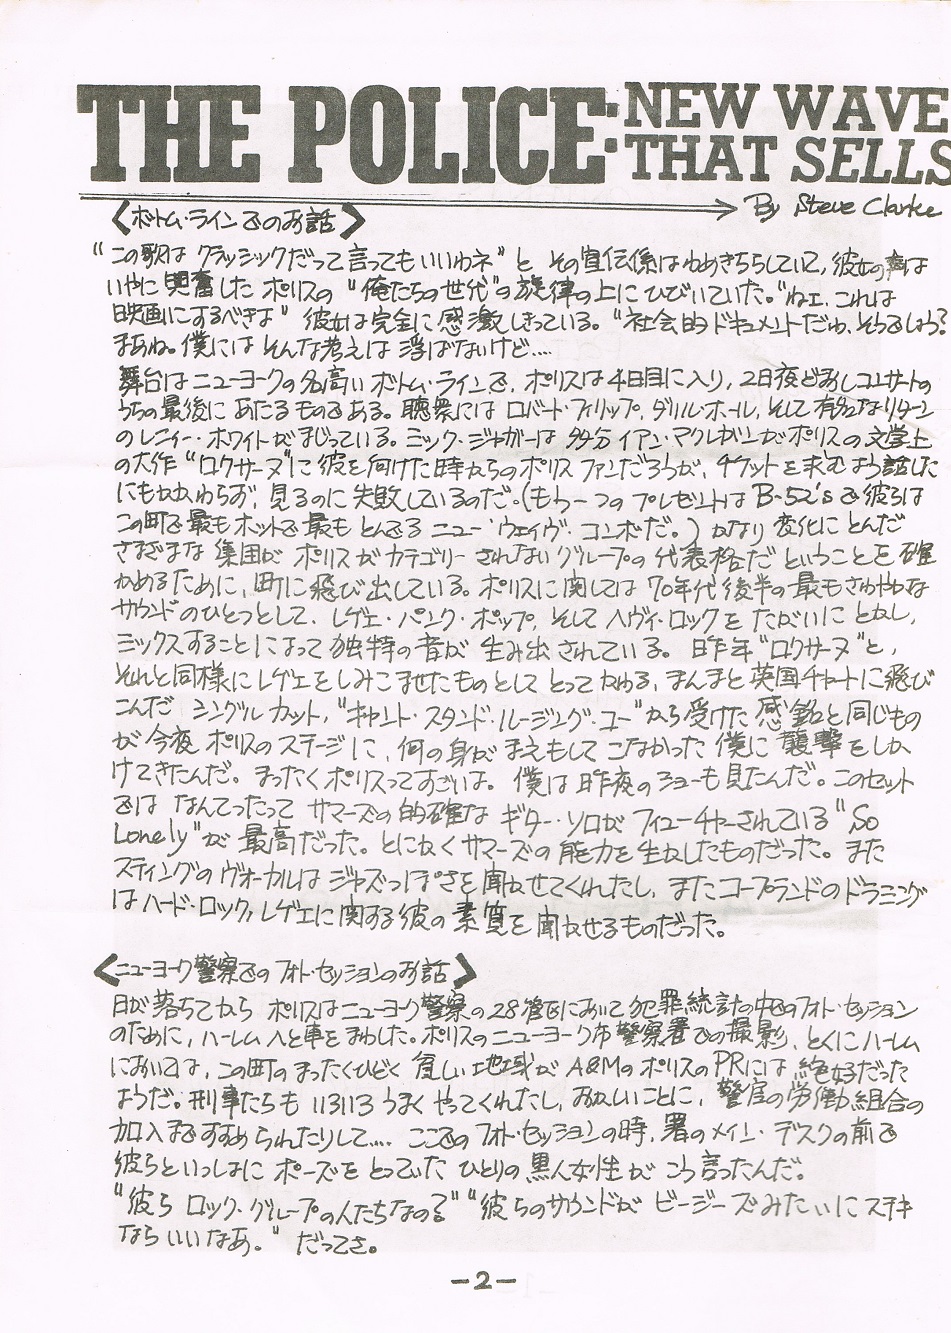 THE POLICE: NEW WAVE
THAT SELLS
By Steve Clarke
〈ボトム・ラインでのお話〉
“この歌は クラッシックだって言ってもいいわネ” と その宣伝係はわめきちらしていて, 彼女の声は
いやに興奮した ポリスの “俺たちの世代” の旋律の上にひびいていた。“ねェ, これは
映画にするべきよ” 彼女は完全に感激しきっている。“社会的ドキュメントだわ, そうでしょう?
まあね。僕には そんな考えは 浮ばないけど....
舞台はニューヨークの名高い ボトム・ラインで, ポリスは4日目に入り, 2日夜どおしコンサートの
うちの最後に あたるものである。聴衆には ロバート・フィリップ, ダリル・ホール, そして 有名なリターン
のレニー・ホワイトがまじっている。ミック・ジャガーは 多分 イアン・マクレガンが ポリスの 文学上
の大作 “ロクサーヌ” に 彼を向けた時からの ポリス ファンだろうが, チケットを求むよう話した
にもかかわらず, 見るのに 失敗しているのだ。(もう一つの プレゼントは B-52's で 彼らは
この町で 最もホットで 最も とんでる ニュー・ウェイヴ・コンボだ。) かなり 変化に とんだ
さまざまな 集団が ポリスが カテゴリーされないグループの 代表格だ ということを 確
かめるために, 町に 飛び出している。ポリスに関しては 70年代後半の 最もさわやかな
サウンドのひとつとして, レゲエ・パンク・ポップ, そして ヘヴィ・ロックを たがいに とかし,
ミックスすることによって 独特の音が 生み出されている。昨年 “ロクサーヌ” と,
それと同様に レゲエを しみこませたものとして とってかわる, まんまと 英国チャートに飛び
こんだ シングルカット, “キャント・スタンド・ルージング・ユー” から受けた 感銘と同じもの
が 今夜 ポリスのステージに, 何の身がまえもしてこなかった 僕に 襲撃をしか
けてきたんだ。まったく ポリスってすごいよ。僕は 昨夜のショーも見たんだ。このセット
では なんてったって サマーズの 的確な ギター・ソロが フィューチャーされている “So
Lonely” が 最高だった。とにかく サマーズの 能力を 生かしたものだった。また
スティングの ヴォーカルは ジャズっぽさを 聞かせてくれたし, またコープランドのドラミング
はハード・ロック, レゲエに関する 彼の 素質を 聞かせるものだった。
〈ニューヨーク警察でのフォト・セッションのお話〉
日が落ちてから ポリスはニューヨーク警察の 28管区において 犯罪統計の中でのフォト・セッション
のために, ハーレムへと車をまわした。ポリスのニューヨーク市警察署での撮影, とくにハーレム
においては, この町の まったくひどく 貧しい 地域が A&Mの ポリスの PRには 絶好だった
ようだ。刑事たちも いろいろ うまく やってくれたし, おかしいことに, 警官の労働組合の
加入まですすめられたりして.... ここでの フォト・セッションの時, 署のメイン・デスクの前で
彼らといっしょに ポーズを とっていた ひとりの 黒人女性が こう言ったんだ。
“彼ら ロック・グループの人たちなの?” “彼らのサウンドが ビージーズみたいにステキ
なら いいなあ。” だってさ。
-2-